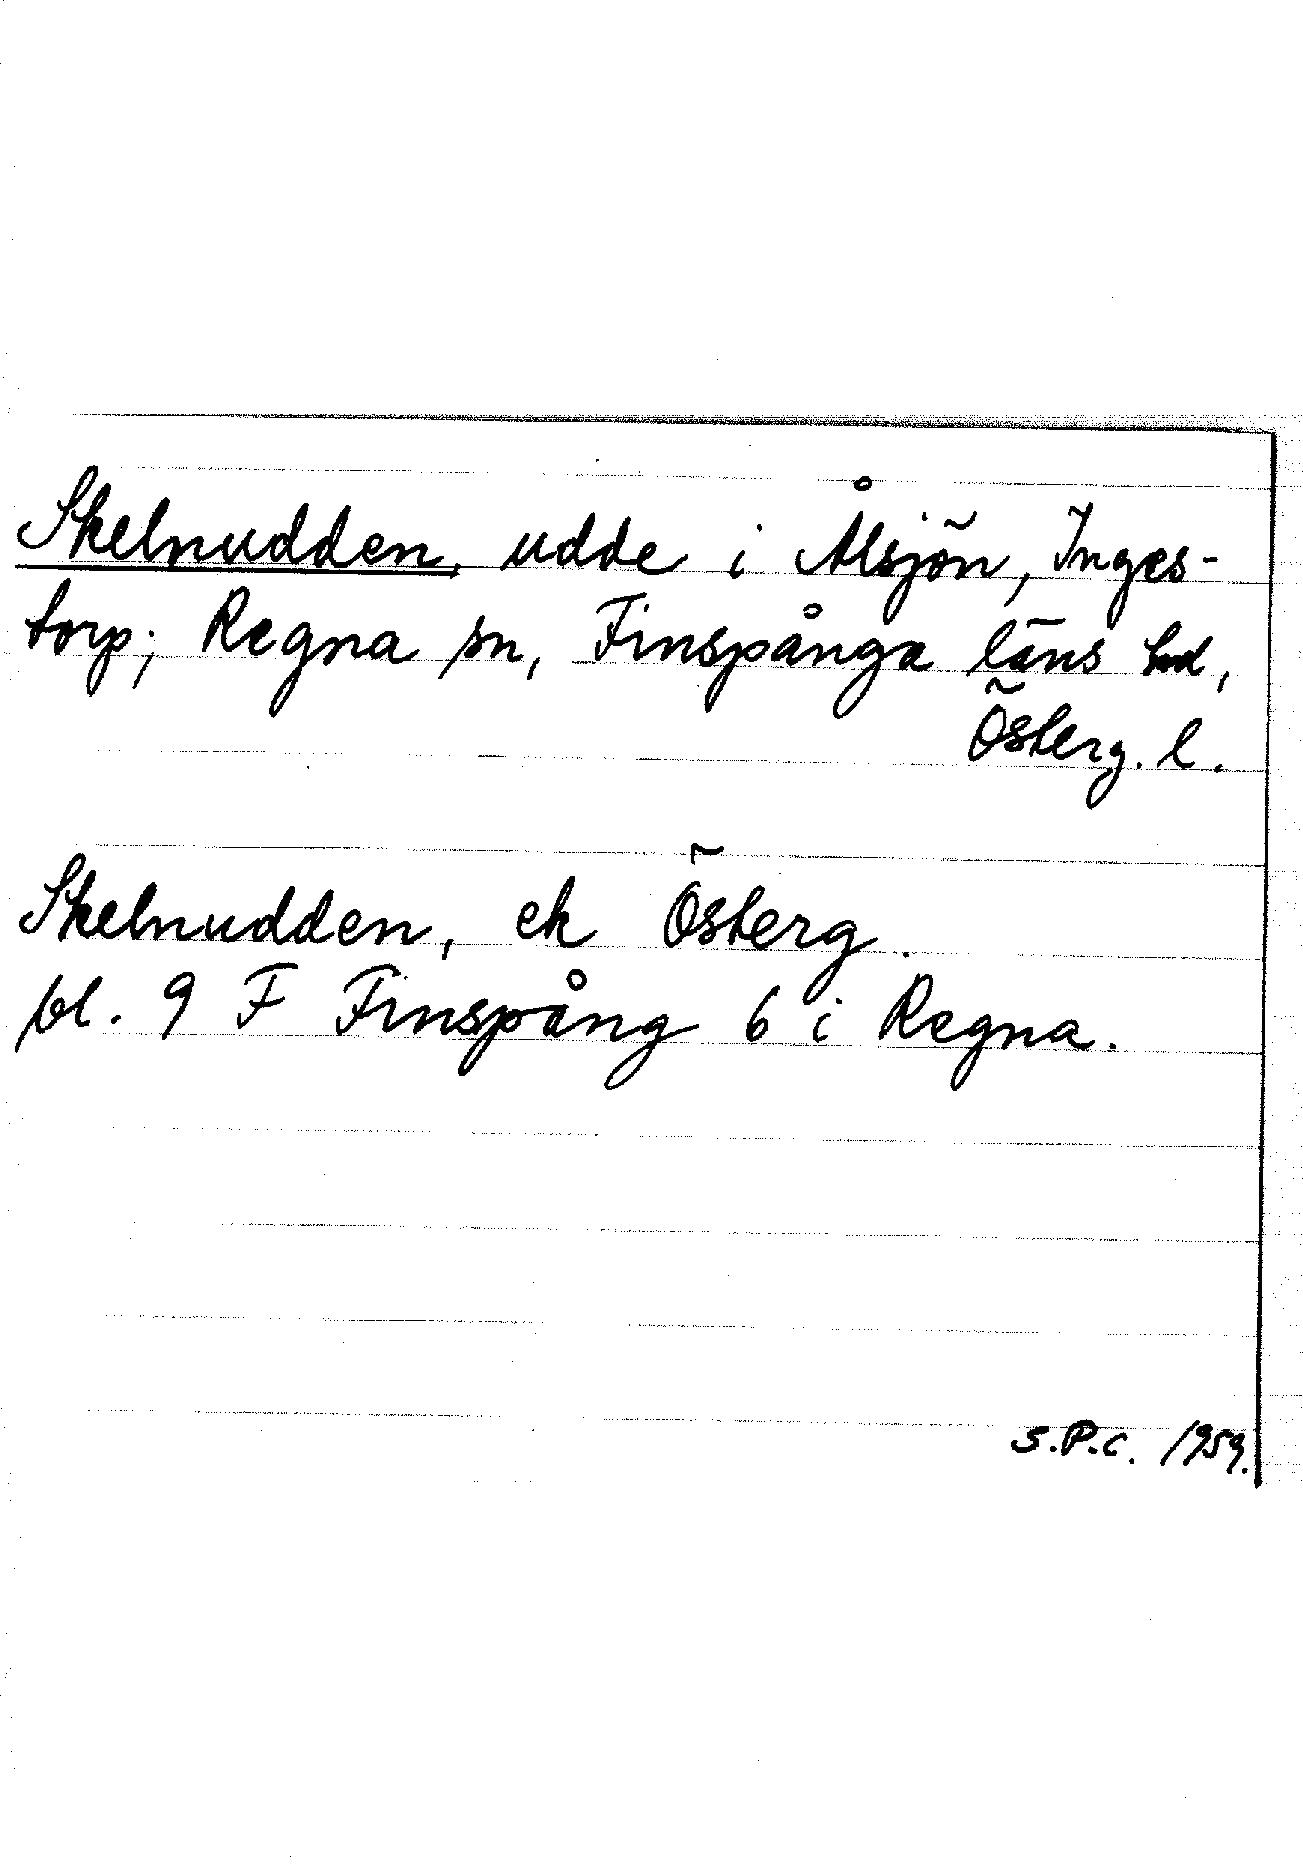 Skelnudden, udde i Ålsjön, Inges-
torp; Regna sn, Finspånga läns hd,
Österg. l.
Skelnudden, ek Österg.
bl. 9 F Finspång 6 i Regna.
S.P.C. 1959.